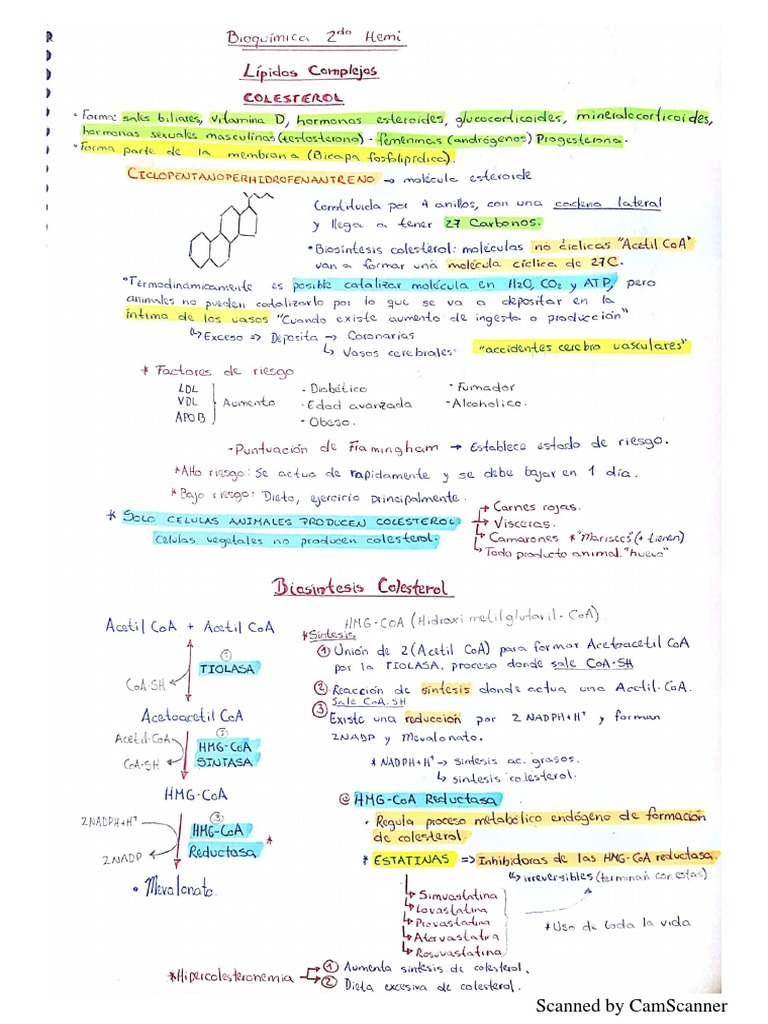 Bioquímica 2do Hemi
Lípidos Complejos
COLESTEROL
• Forma: sales biliares, vitamina D, hormonas esteroides, glucocorticoides, mineralocorticoides,
hormonas sexuales masculinas (testosterona) - femeninas (andrógenos) Progesterona.
• Forma parte de la membrana (Bicapa fosfolipídica).
CICLOPENTANOPERHIDROFENANTRENO → molécula esteroide
Constituida por 4 anillos, con una cadena lateral
y llega a tener 27 Carbonos.
• Biosíntesis colesterol: moléculas no cíclicas "Acetil CoA"
van a formar una molécula cíclica de 27C.
• Termodinamicamente es posible catalizar molécula en H2O, CO2 y ATP, pero
animales no pueden catalizarlo por lo que se va a depositar en la
íntima de los vasos "Cuando existe aumento de ingesta o producción"
↳ Exceso => Deposita → Coronarias
↳ Vasos cerebrales: "accidentes cerebro vasculares"
* Factores de riesgo
LDL
VDL
APOB
Aumento
- Diabético
- Edad avanzada
- Obeso.
- Fumador
- Alcoholico.
- Puntuación de Framingham → Establece estado de riesgo.
* Alto riesgo: Se actua de rapidamente y se debe bajar en 1 día.
* Bajo riesgo: Dieta, ejercicio principalmente.
* SOLO CELULAS ANIMALES PRODUCEN COLESTEROL
celulas vegetales no producen colesterol.
→ Carnes rojas.
→ Visceras.
→ Camarones * "Mariscos" (+ tienen)
↳ Todo producto animal. "huevo"
Biosíntesis Colesterol
Acetil CoA + Acetil CoA
① TIOLASA
CoA-SH
Acetoacetil CoA
Acetil-CoA
CoA-SH
② HMG-CoA
SINTASA
HMG-CoA
2NADPH+H+
2NADP
③ HMG-CoA
Reductasa *
• Mevalonato.
HMG-CoA (Hidroxi metilglutaril-CoA)
* Síntesis
① Unión de 2 (Acetil CoA) para formar Acetoacetil CoA
por la TIOLASA, proceso donde sale CoA-SH
② Reacción de síntesis donde actua una Acetil-CoA.
Sale CoA.SH
③ Existe una reducción por 2 NADPH+H+ y forman
2NADP y Mevalonato.
* NADPH+H+ → síntesis ac. grasos.
↳ síntesis colesterol.
@ HMG-CoA Reductasa
• Regula proceso metabólico endógeno de formación
de colesterol.
* ESTATINAS => Inhibidoras de las HMG-CoA reductasa.
↳ irreversibles (terminan con estas)
↳ Simvastatina
↳ Lovastatina
↳ Pravastatina
↳ Atorvastatina
↳ Rosuvastatina
* Uso de toda la vida
* Hipercolesteronemia
① Aumenta síntesis de colesterol.
② Dieta excesiva de colesterol.
Scanned by CamScanner